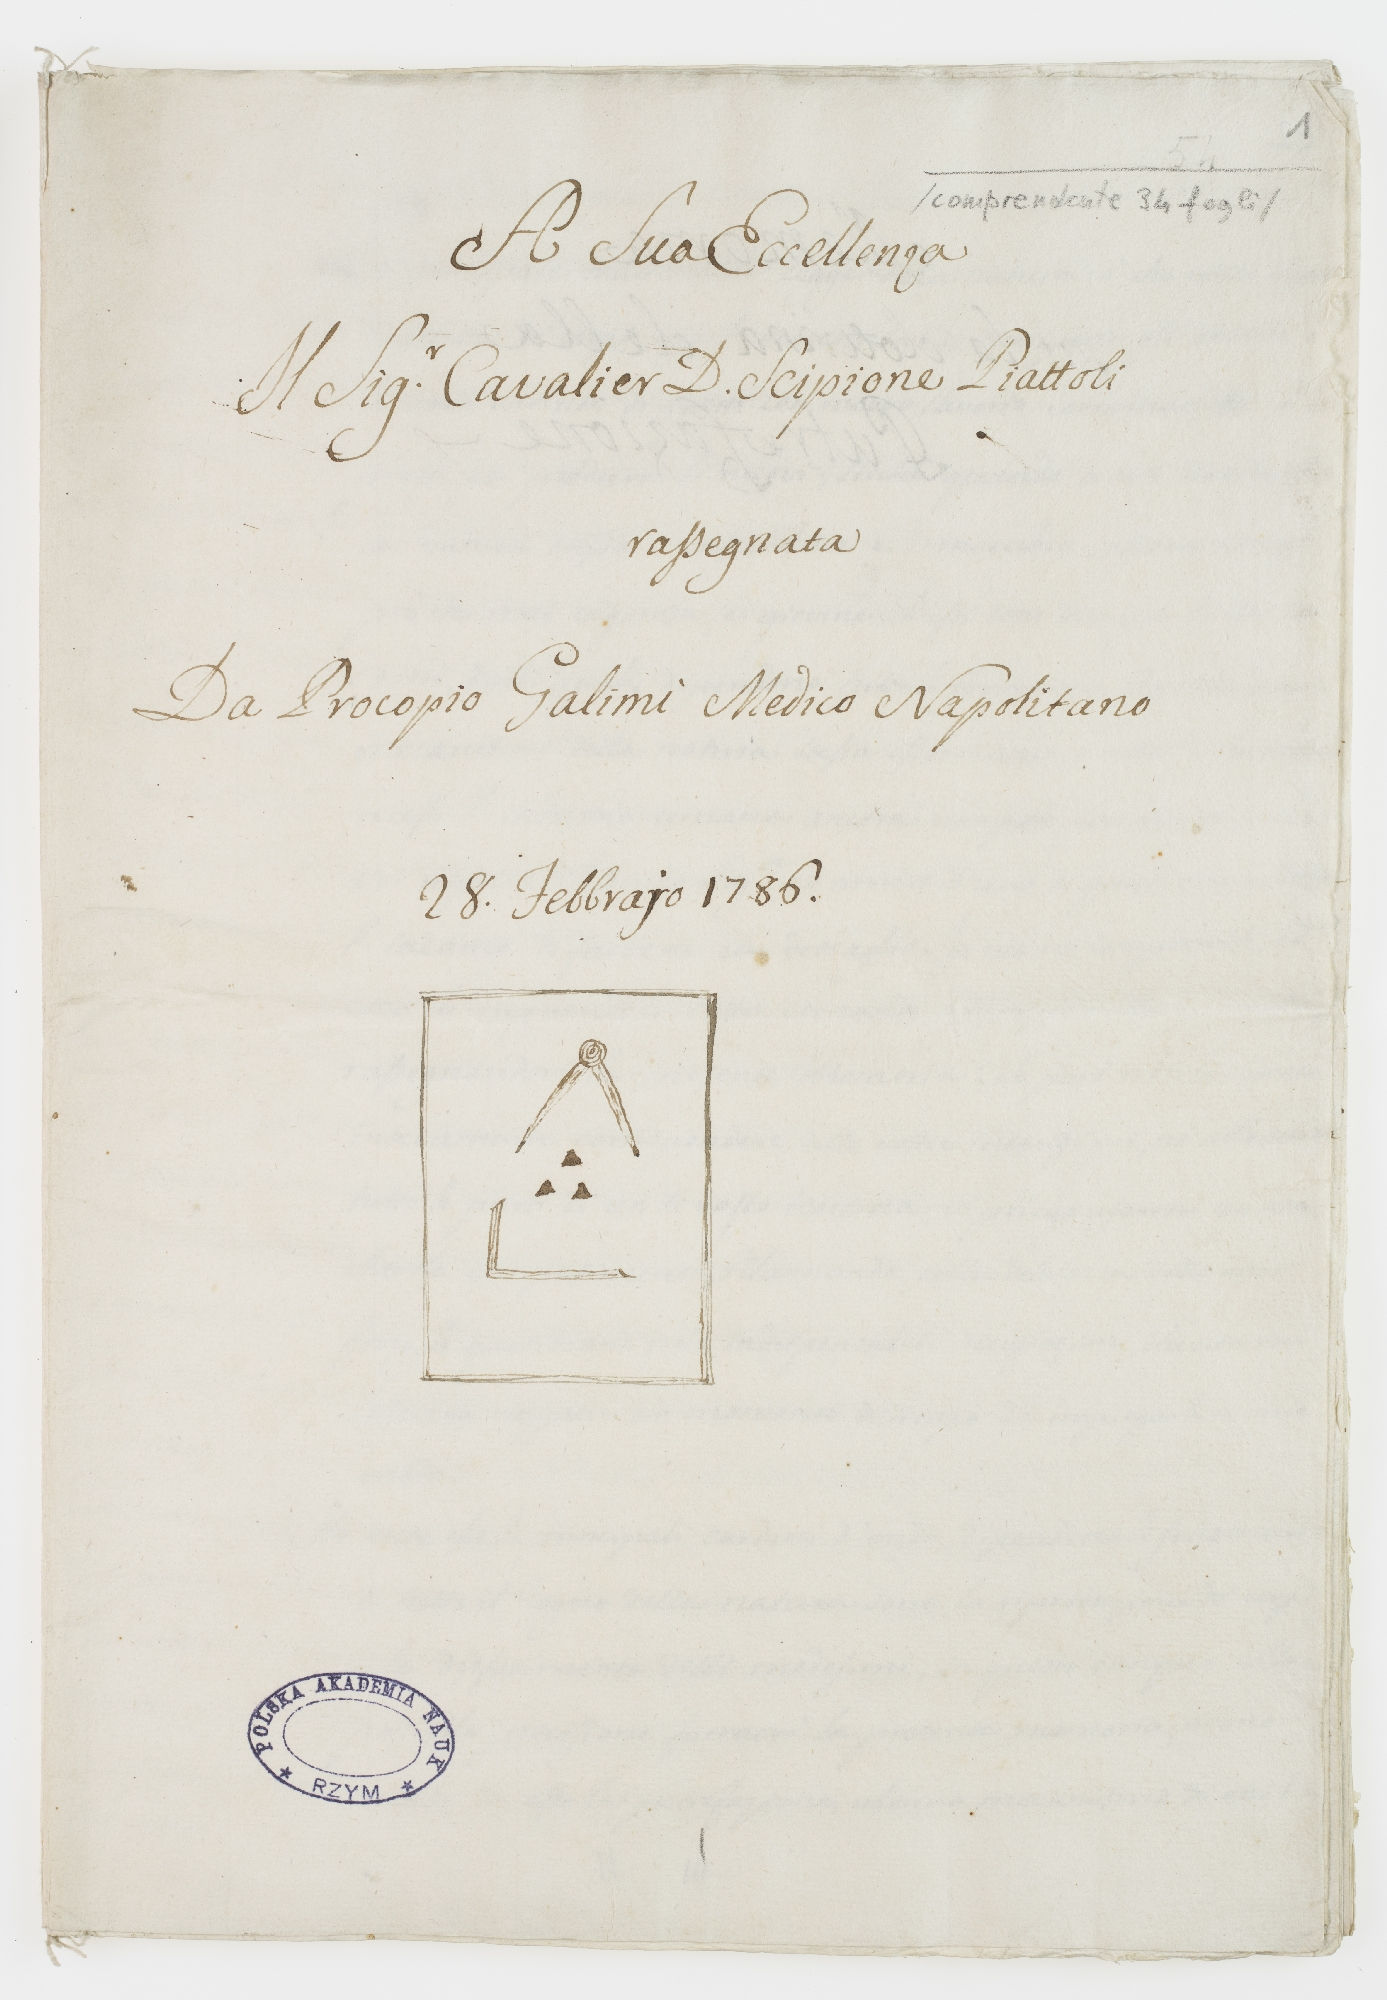 1
54
/comprendente 34 fogli/
A Sua Eccellenza
Il Sig.r Cavalier D. Scipione Piattoli
raſsegnata
Da Procopio Galimi Medico Napolitano
28. Febbrajo 1786.
POLSKA AKADEMIA NAUK
* RZYM *